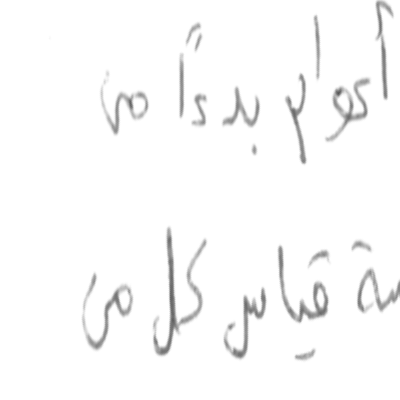 أعوام بدءًا من
قياس كل من